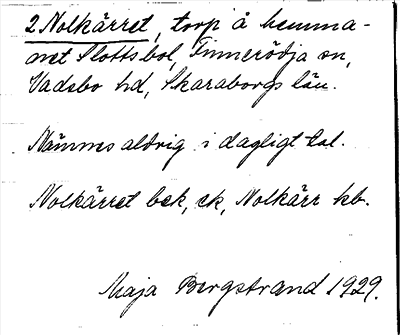 2 Nolkärret, torp å hemma-
net Slottsbol, Finnerödja sn,
Vadsbo hd, Skaraborgs län.
Nämnes aldrig i dagligt tal.
Nolkärret bek, ek, Nolkärr kb.
Maja Bergstrand 1929.